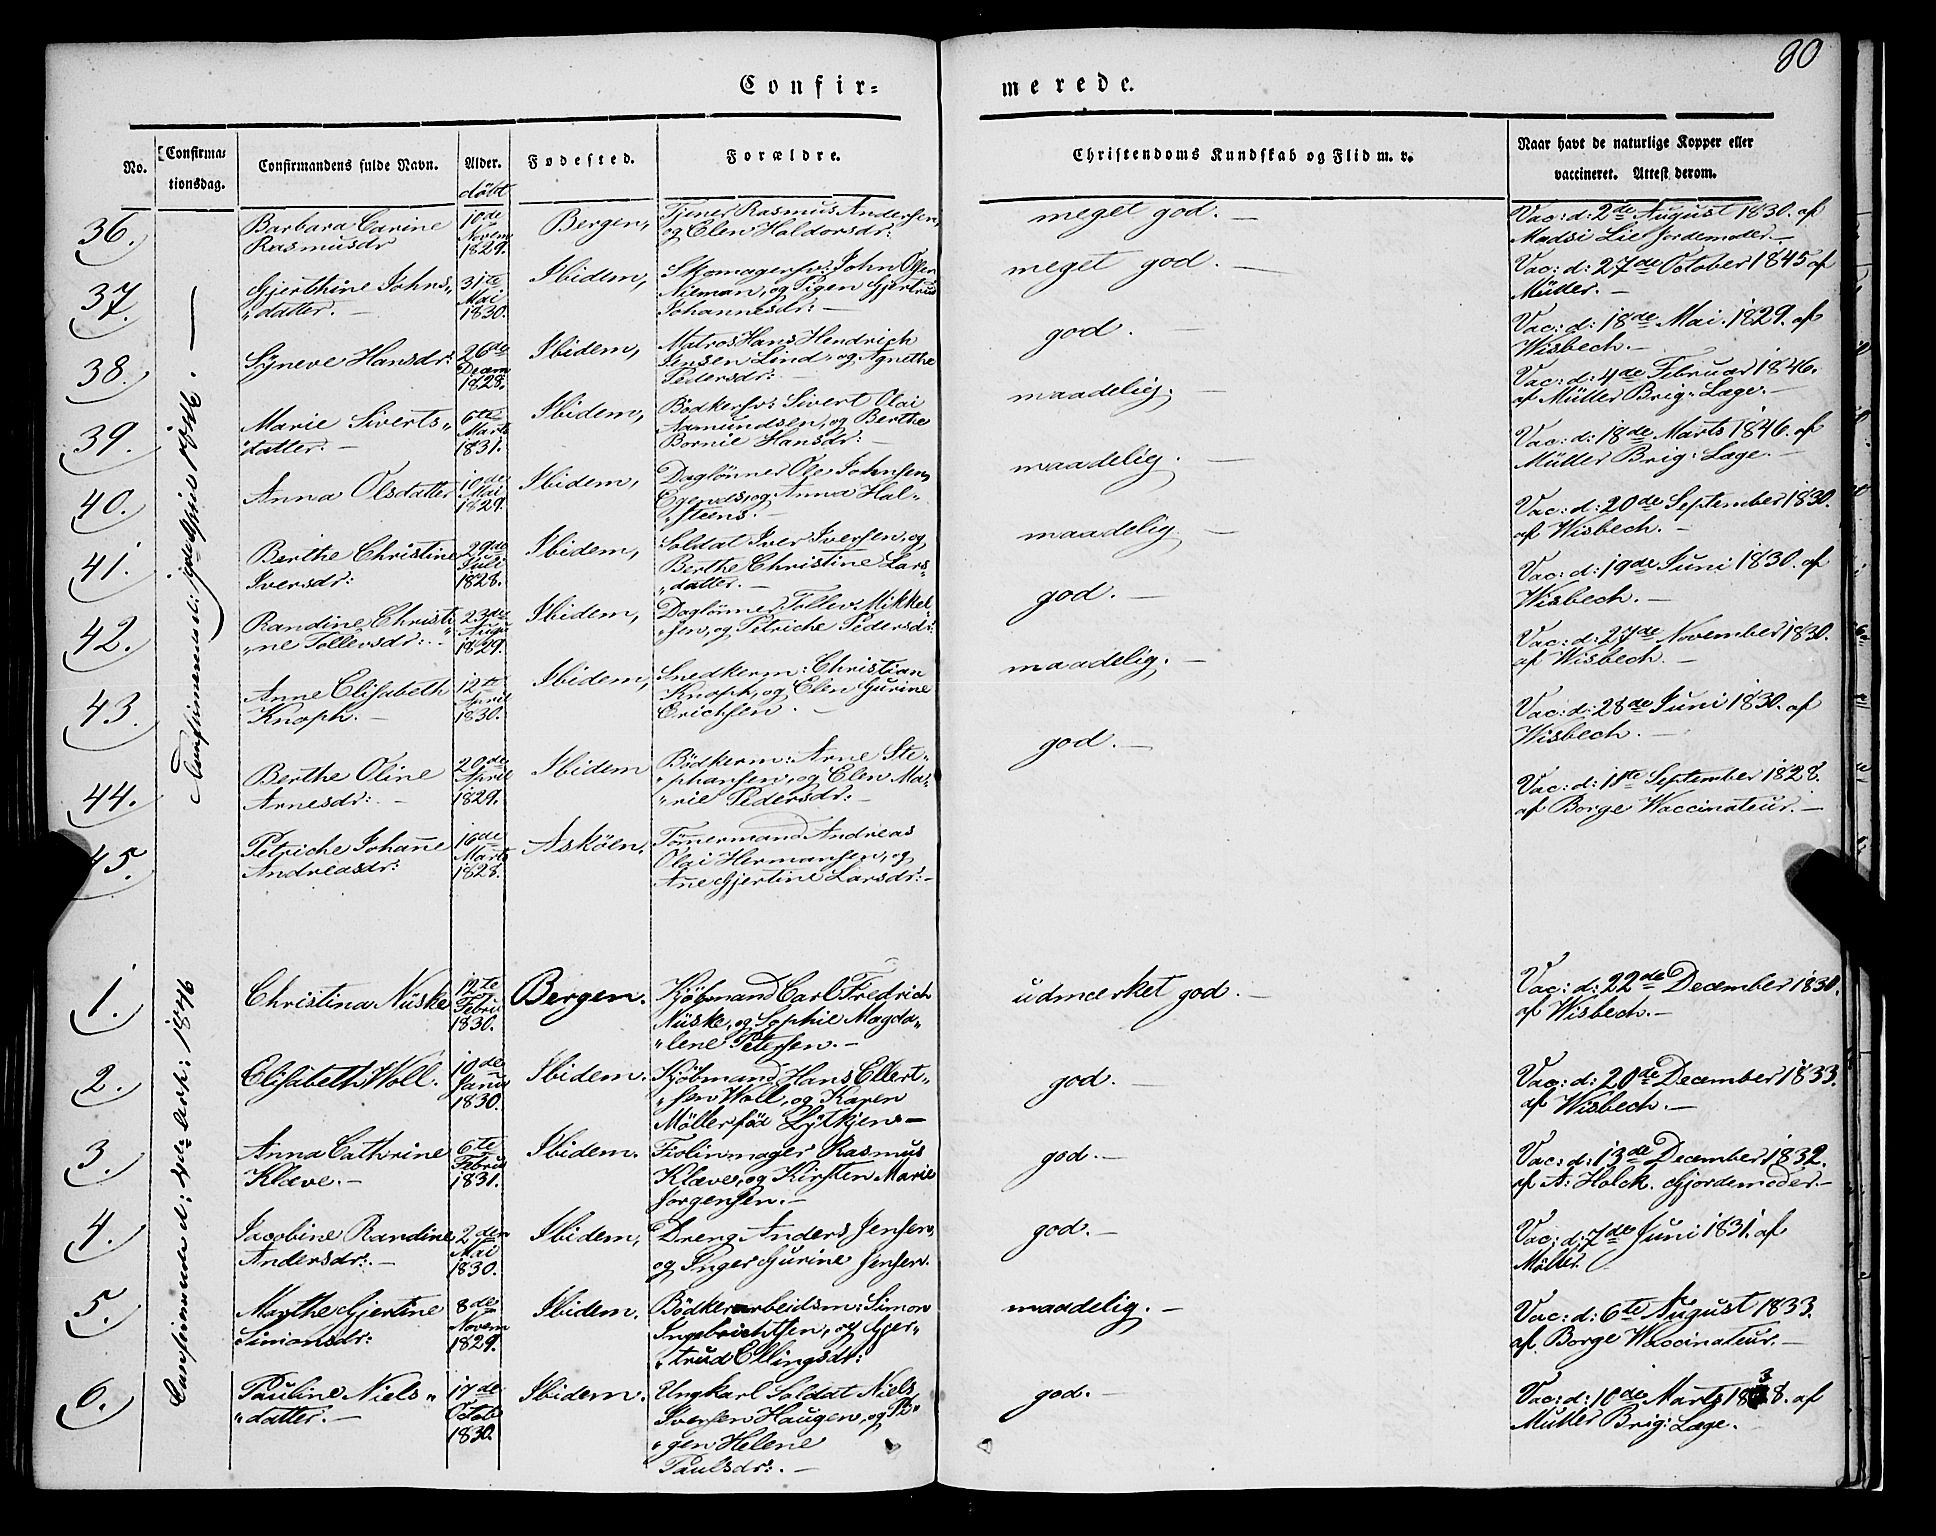 80
Confir=
merede.
No.
Confirma=
tionsdag.
Confirmandens fulde Navn.
Alder.
döbt
Fødested.
Forældre.
Christendoms Kundskab og Flid m. v.
Naar havt de naturlige Kopper eller
vaccineret. Attest derom.
36.
Barbara Carine
Rasmusdr
10de
Novem
1829.
Bergen,
Tjener Rasmus Andersen,
og Elen Haldorsdr:
meget god. —
Vac: d: 2de August 1830. af
Madsi Lie Jordemoder. —
37.
Gjerthine Johns„
„datter. —
31te
Mai
1830.
Ibidem,
Skomagersv: John Olsen
Nieman, og Pigen Gjertrud
Johannesdr: —
meget god. —
Vac: d: 27de October 1845 af
Müller. —
38.
Syneve Hansdr:
26de
Decem
1828.
Ibidem,
Matros Hans Hendrich
Jensen Lind, og Agnethe
Pedersdr: —
god. —
Vac: d: 18de Mai. 1829. af
Wisbech. —
39.
Marie Siverts„
„datter. —
6te
Marts
1831.
Ibidem,
Bödkersv: Sivert Olai
Aamundsen, og Berthe
Bornie Hansdr: —
maadelig. —
Vac: d: 4de Februar 1846.
af Müller Brig: Læge. —
40.
Anna Olsdatter
10de
Mai
1829.
Ibidem,
Daglönner Ole Johnsen
Egenes, og Anna Hal„
„steens. —
maadelig. —
Vac: d: 18de Marts 1846. af
Müller Brig: Læge. —
41.
Berthe Christine
Iversdr:
29de
Juli
1828.
Ibidem,
Soldat Iver Iversen, og
Berthe Christine Lars„
„datter. —
maadelig —
Vac: d: 20de September 1830.
af Wisbech. —
42.
Randine Christi„
„ne Tollevsdr: —
23de
Augu
1829.
Ibidem,
Daglönner Tollev Mikkel„
„sen, og Petriche Pedersdr:
god. —
Vac: d: 19de Juni 1830. af
Wisbech. —
43.
Anne Elisabeth
Knoph. —
12te
April
1830.
Ibidem,
Snedkerm: Christian
Knoph, og Elen Gurine
Erichsen. —
maadelig. —
Vac: d: 27de November 1830.
af Wisbech. —
44.
Berthe Oline
Arnesdr: —
20de
April
1829.
Ibidem
Bödkerm: Arne Ste„
„phansen, og Elen Ma„
„rie Pedersdr: —
god. —
Vac: d: 28de Juni 1830. af
Wisbech. —
45.
Petriche Johanne
Andreasdr:
16de
Marts
1828.
Asköen.
Tömmermand Andreas
Olai Hermansen, og
Ane Gjertine Larsdr: —
Vac: d: 11te September 1828.
af Borge Vaccinateur. —
1.
Christina Nüske
12te
Febru
1830.
Bergen.
Kjöbmand Carl Fredrich
Nüske, og Sophie Magda„
„lene Petersen. —
udmærket god. —
Vac: d: 22de December 1830.
af Wisbech. —
2.
Elisabeth Woll.
10de
Janu
1830.
Ibidem.
Kjöbmand Hans Ellert„
„sen Woll, og Karen
Möller föd Lytkjens —
god. —
Vac: d: 20de December 1833.
af Wisbech. —
3.
Anna Cathrine
Klæve. —
6te
Febru
1831.
Ibidem.
Fiolinmager Rasmus
Klæve, og Kirsten Marie
Jörgensen. —
god. —
Vac: d: 13de December 1832.
af A: Holck. Gjordemoder. —
4.
Jacobine Randine
Andersdr: —
2den
Mai
1830.
Ibidem,
Dreng Anders Jensen,
og Inger Gurine Jensen.
god. —
Vac: d: 7de Juni 1831. af
Möller.
5.
Marthe Gjertine
Simonsdr:
8de
Novem
1829.
Ibidem.
Bödkerarbeidsm: Simon
Ingebrichtsen, og Gjer„
„trud Ellingsdr:
maadelig. —
Vac: d: 6te August 1833.
af Borge Vaccinateur. —
6.
Pauline Niels„
„datter. —
17de
Octob
1830.
Ibidem.
Ungkarl Soldat Niels
Iversen Haugen, og Pi„
„gen Helene
Paulsdr: —
god. —
Vac: d: 10de Marts 1838. af
Müller Brig: Læge.